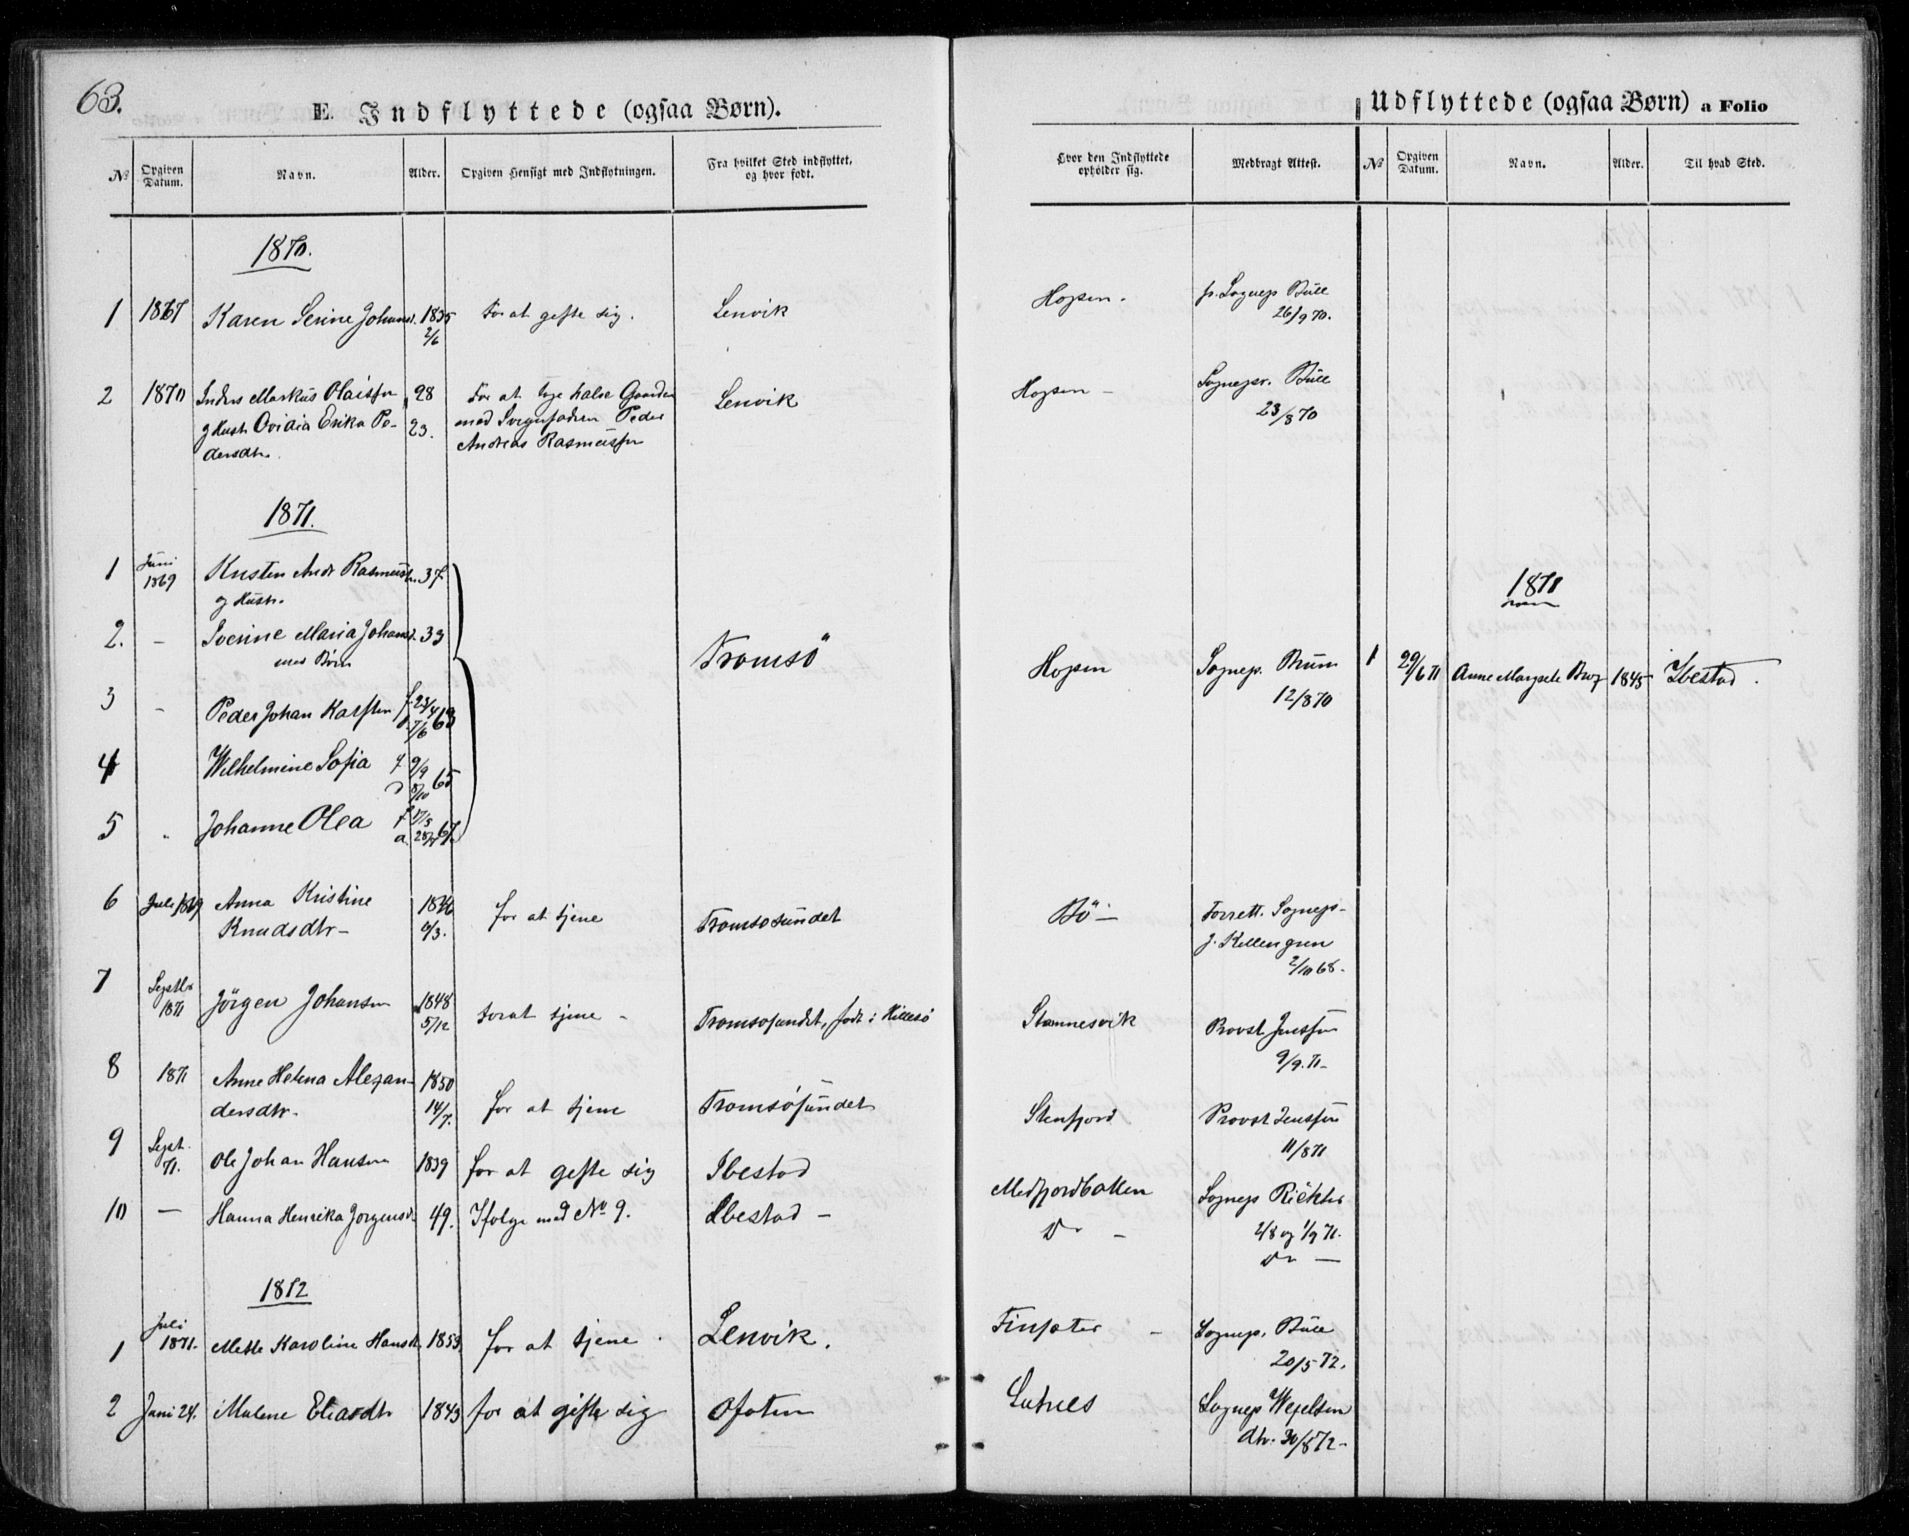 63.
E. Indflyttede (ogsaa Børn).
№ Opgiven Datum. Navn. Alder. Opgiven Hensigt med Indflytningen. Fra hvilket Sted indflyttet, og hvor født.
1870.
1 1867 Karen Serine Johansd. 1835 For at gifte sig. Lenvik
2/6
2 1870 Anders Markus Olaissen 28 For at halve Gaarden Lenvik
g Hustr. Ovidia Erika Pe- 23. med Svigerfaderen Peder
dersdtr. Andreas Rasmussen
1871.
1 Juni 1869 Kristen Andr Rasmussen 37
og Hustr.
2. – Iverine Maria Johansd. 33 Tromsö
med Børn
3 – Peder Johan Karsten f. 23/4 63
d. 7/6
4 Wilhelmine Sofia f 9/9 65
d 8/10
5 " Johanne Olea f 17/3 67.
6 Juli 1869 Anna Kristine for at tjene Tromsosundet
Knudsdtr– /3.
7 Septb. 1871 Jörgen Johansen 1848 For at tjene – Tromsosundet, födt i Hillesö
5/12
8 1871 Anne Helena Alexan- 1850
dersdtr. 14/7. for at tjene Tromsösundet
9 Sept. 71. Ole Johan Hansen 1839 for at gifte sig Ibestad
10 — Hanna Henrika Jorgensd. 49. Ifølge med № 9. Ibestad –
1872
1 Juli 1871. Mette Karoline Hansdt. 1853 for at tjene . Lenvik.
2 Juni 24. Malene Eliasdtr 1843 for at gifte sig Ofoten
Udflyttede (ogsaa Børn) a Folio
Hvor den Indflyttede opholder sig. Medbragt Attest. № Opgiven Datum. Navn. Alder. Til hvad Sted.
Hopen. Sognep Bull
26/9 70.
Hopen – Sognepr. Bull
23/8 70
1871
Hopen Sognep. Bruun 1 29/6 71 Anne Margrete 1845 Ibestad.
12/8 70
Bö – Forrett. Sognep-
2/10 68.
Stønnesvik Provst Jenssen
9/9. 71–
Stenfjord Provst Jenssen
11/8 71
Medfjordbotten Sognep Rickter
Do – 2/8 og 1/9 71.
Do —
Finsæter – Sognep. Bull
20/5 72.
Lutnes Sognep Wexelsen
dtr. 30/8 72–